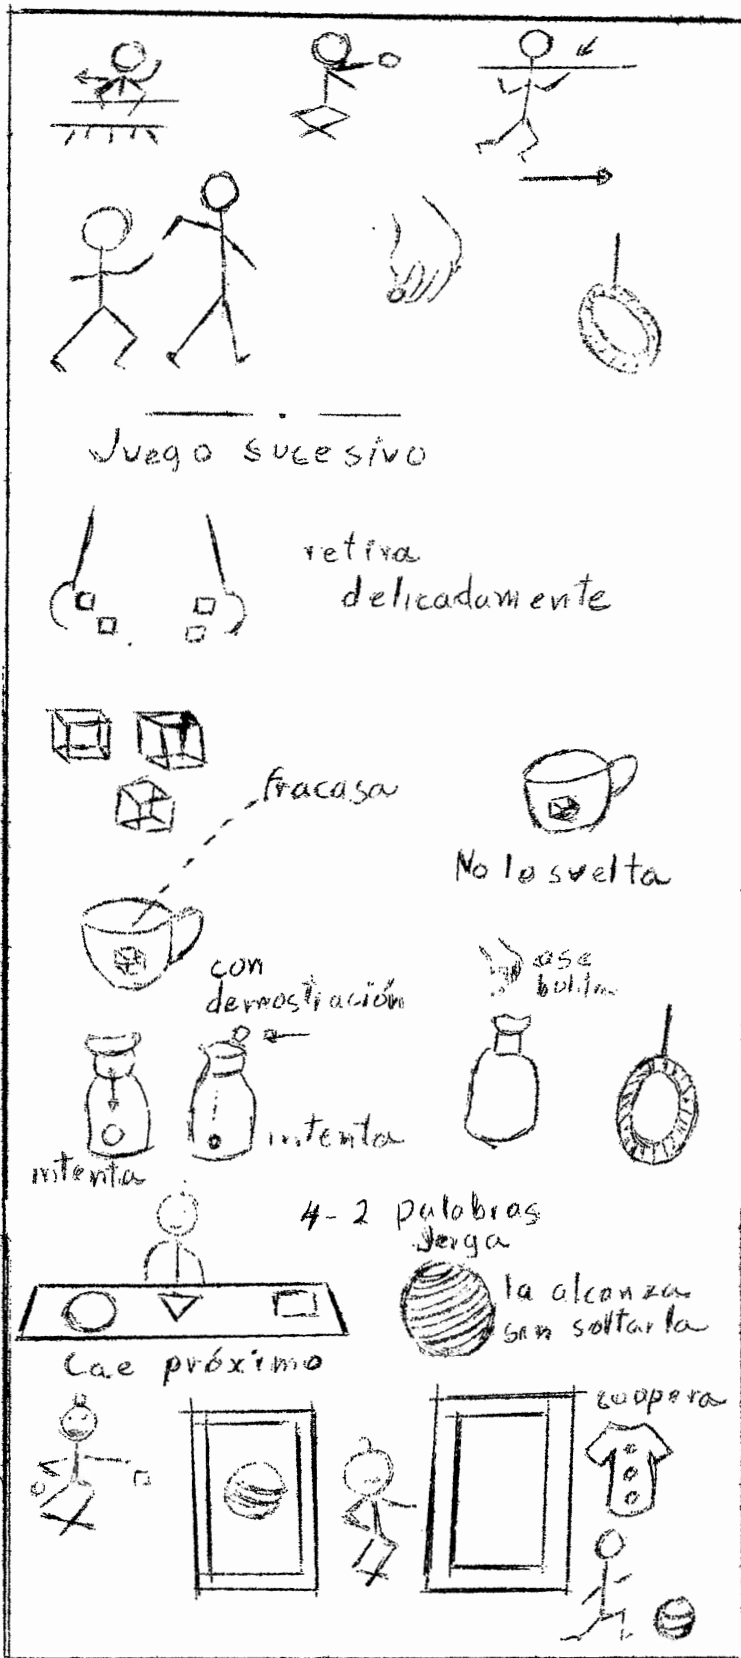 Juego sucesivo
retira
delicadamente
fracasa
No lo svelta
con
demostración
ase
intenta
intenta
4-2 palabras
Jerga
la alcanza
sin soltarla
Cae próximo
coopera